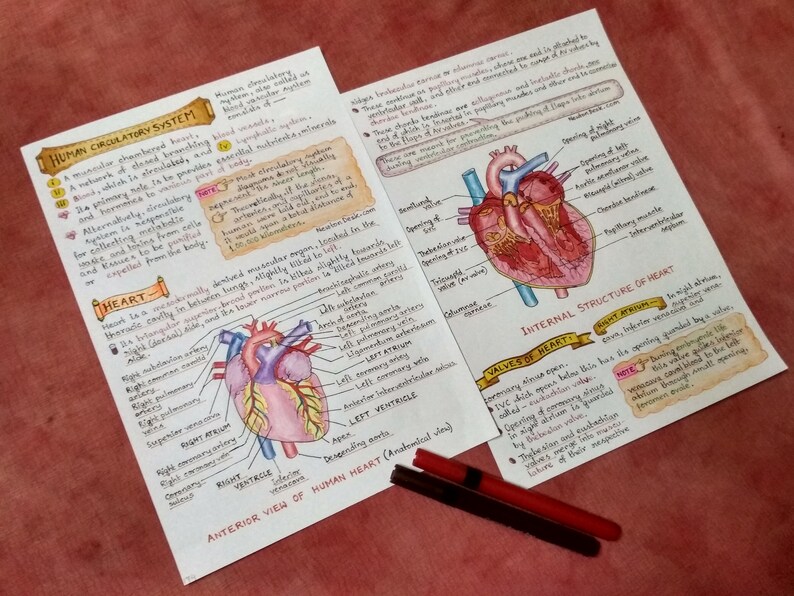 HUMAN CIRCULATORY SYSTEM
Human circulatory
system, also called as
blood vascular system
consists of —
i A muscular chambered heart,
ii A network of closed branching blood vessels,
iii Blood, which is circulated, and iv Lymphatic system,
Its primary role is to provides essential nutrients, minerals
and hormones to various part of body.
Alternatively, circulatory
system is responsible
for collecting metabolic
waste and toxins from cells
and tissues to be purified
or expelled from the body.
NOTE Most circulatory system
diagrams do not visually
represent its sheer length.
Theoretically, if the veins,
arteries, and capillaries of a
human were laid out, end to end,
it would span a total distance of
1,00,000 kilometers.
NewtonDesk.com
HEART —
Heart is a mesodermally derived muscular organ, located in the
thoracic cavity in between lungs, slightly tilted to left.
Its triangular superior broad portion is tilted slightly towards
right (dorsal) side, and its lower narrow portion is tilted towards left
side.
Brachiocephalic artery
Left common carotid
artery
Left subclavian
artery
Arch of aorta
Descending aorta
Left pulmonary artery
Left pulmonary vein
Ligamentum arteriosum
LEFT ATRIUM
Left coronary artery
Left coronary vein
Anterior interventricular sulcus
LEFT VENTRICLE
Apex
Descending aorta
Right subclavian artery
Right common carotid
artery
Right pulmonary
artery
Right pulmonary
veins
Superior vena cava
RIGHT ATRIUM
Right coronary artery
Right coronary vein
Coronary
sulcus
RIGHT
VENTRCLE
inferior
venacava
ANTERIOR VIEW OF HUMAN HEART (Anatomical view)
ridges trabeculae carnae or columnae carnae.
These continue as papillary muscles, whose one end is attached to
ventricular wall, and other end connected to cusps of AV valves by
chordae tendinae.
These chordae tendinae are collagenous and inelastic chords, one
end of which is inserted in papillary muscles and other end is connected
to the flaps of AV valves.
NewtonDesk.com
These are meant for preventing the pushing of flaps into atrium
during ventricular contraction.
Opening of right
pulmonary veins
Opening of left
pulmonary veins
Aortic semilunar valve
Bicuspid (mitral) valve
Chordae tendinae
Papillary muscle
interventricular
septum
Semilunar
valve
Opening of
SVC
Thebesian valve
Opening of IVC
Tricuspid
valve (AV valve)
Columnae
carneae
INTERNAL STRUCTURE OF HEART
VALVES OF HEART:
RIGHT ATRIUM — In right atrium,
superior vena-
cava, inferior venacava and
coronary sinus open.
IVC which opens below this has its opening guarded by a valve,
called — eustachian valve.
Opening of coronary sinus
in right atrium is guarded
by thebesian valve.
Thebesian and eustachian
valves merge into muscu-
lature of their respective
NOTE During embryonic life
this valve guides inferior
venacaval blood to the left
atrium through small opening,
foramen ovale.